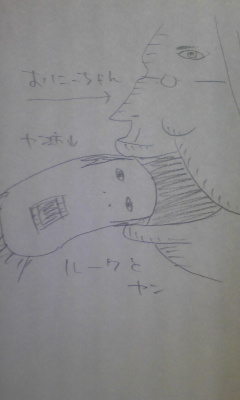 おにーちゃん
ヤンホル
ルークと
ヤン